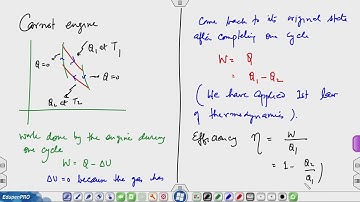 Carnot engine
Q1 at T1
Q=0
Q=0
Q2 at T2
Work done by the engine during
one cycle
W = Q - ΔU
ΔU=0 because the gas has
Come back to its original state
after completing one cycle
W = Q
= Q1 - Q2
(We have applied Ist law
of thermodynamics).
Efficiency η = W/Q1
= 1 - Q2/Q1)
EduperPRO